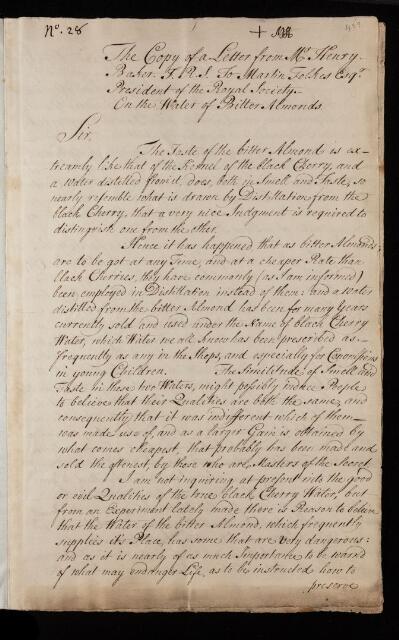 No. 28
The Copy of a Letter from Mr. Henry
Baker. F.R.S. To Martin Folkes Esqr.
President of the Royal Society.
On the Water of Bitter Almonds
Sir.
The Taste of the bitter Almond is ex-
treamly like that of the Kernel of the black Cherry, and
a Water distilled from it, does, both in Smell and Taste, so
nearly resemble what is drawn by Distillation from the
black Cherry, that a very nice Judgment is required to
distinguish one from the other.
Hence it has happened that as bitter Almonds
are to be got at any Time, and at a cheaper Rate than
black Cherries, they have commonly (as I am informed)
been employed in Distillation instead of them: and a Water
distilled from the bitter Almond has been for many Years
currently sold and used under the Name of black Cherry
Water, which Water we all know has been prescribed as
frequently as any in the Shops, and especially for Convulsions
in young Children. The Similitude of Smell and
Taste in those two Waters, might possibly induce People
to believe that their Qualities are both the same, and
consequently that it was indifferent which of them
was made use of, and as a larger Gain is obtained by
what comes cheapest, that probably has been made and
sold the oftenest, by those who are Masters of the Secret.
I am not inquiring at present into the good
or evil Qualities of the true black Cherry Water, but
from an Experiment lately made there is Reason to believe
that the Water of the bitter Almond, which frequently
supplies its Place, has some that are very dangerous:
and as it is nearly of as much Importance to be warn'd
of what may endanger Life, as to be instructed how to
preserve